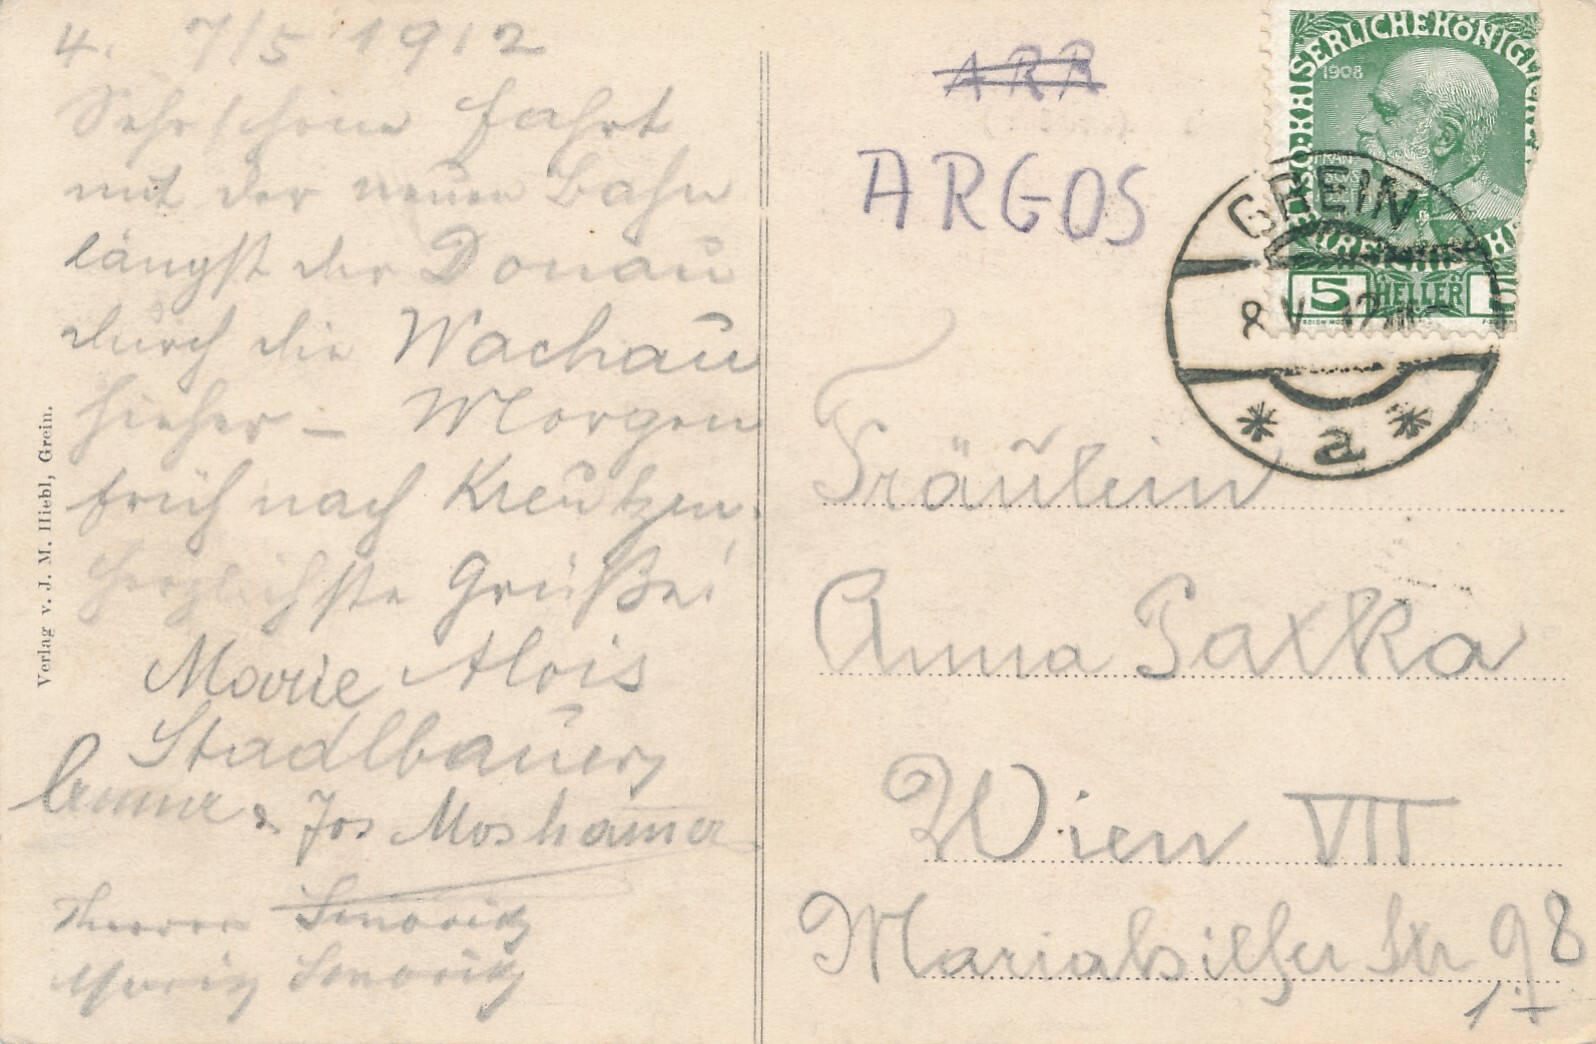 4. 7/5 1912
Sehr schöne Fahrt
mit der neuen Bahn
längst der Donau
durch die Wachau
hieher – Morgen
früh nach Kreutzen.
Herzlichste Grüße!
Marie Alois
Stadlbauer
Anna & Jos Moshamer
Moriz
Verlag v. J. M. Hiebl, Grein.
ARR
ARGOS
K.K.ISERLICHEKÖNIG
1908
5 HELLER
GREIN
8 V 12
* a *
Fräulein
Anna Paxka
Wien VII
Mariahilfer Str 98